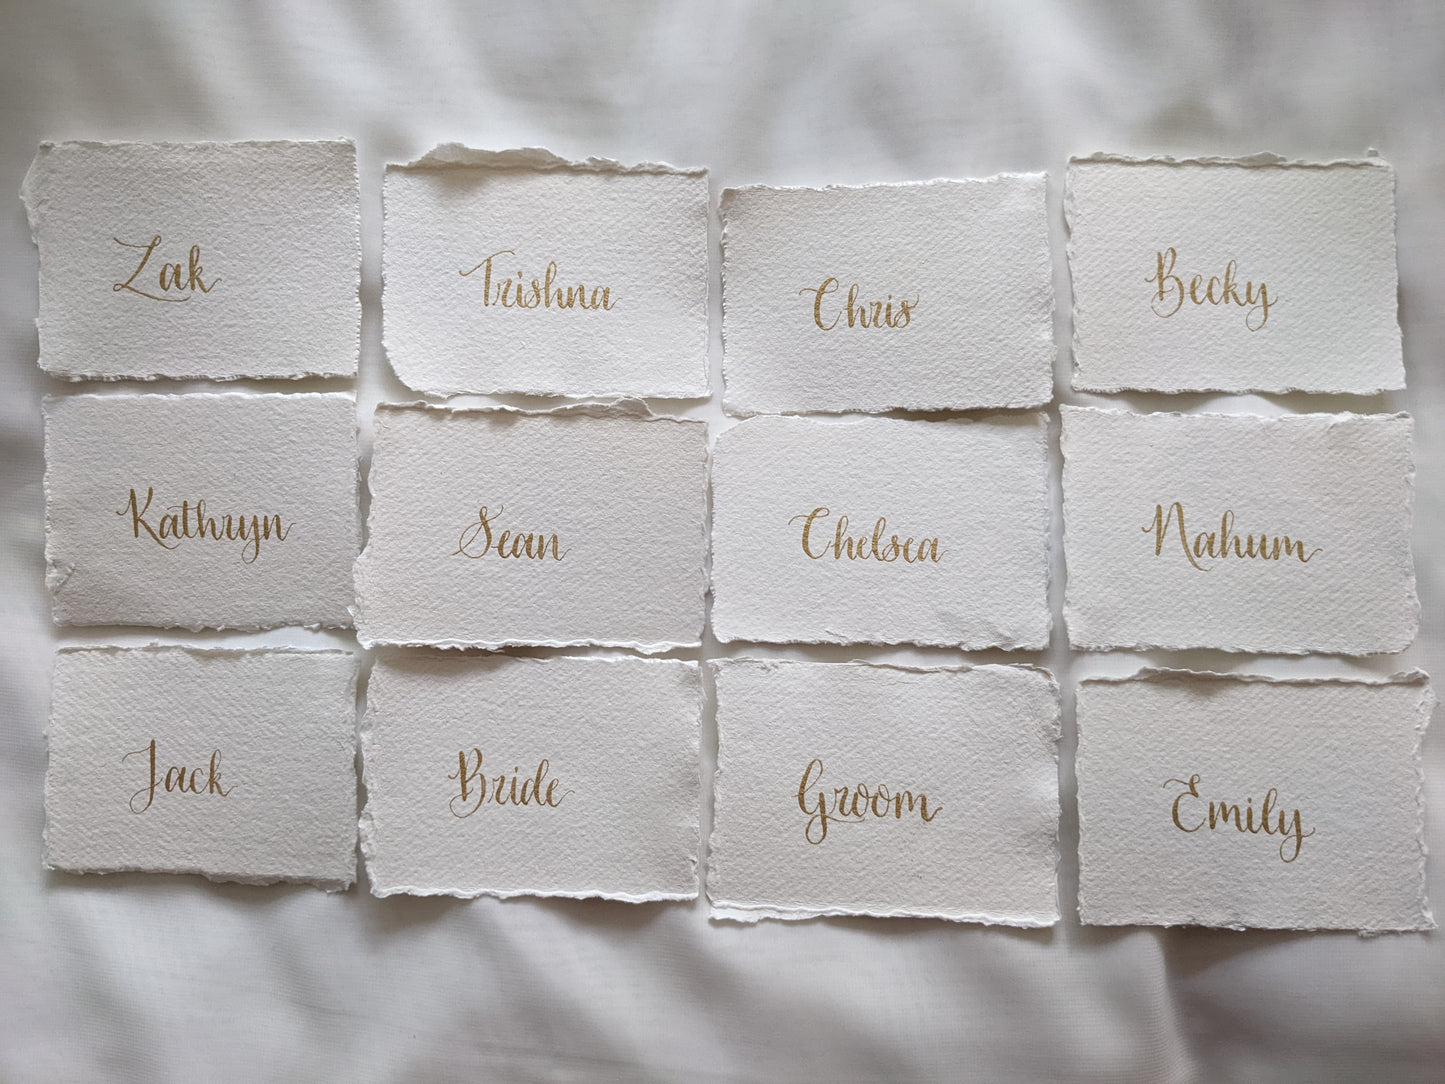 Zak
Trishna
Chris
Becky
Kathryn
Sean
Chelsea
Nahum
Jack
Bride
Groom
Emily